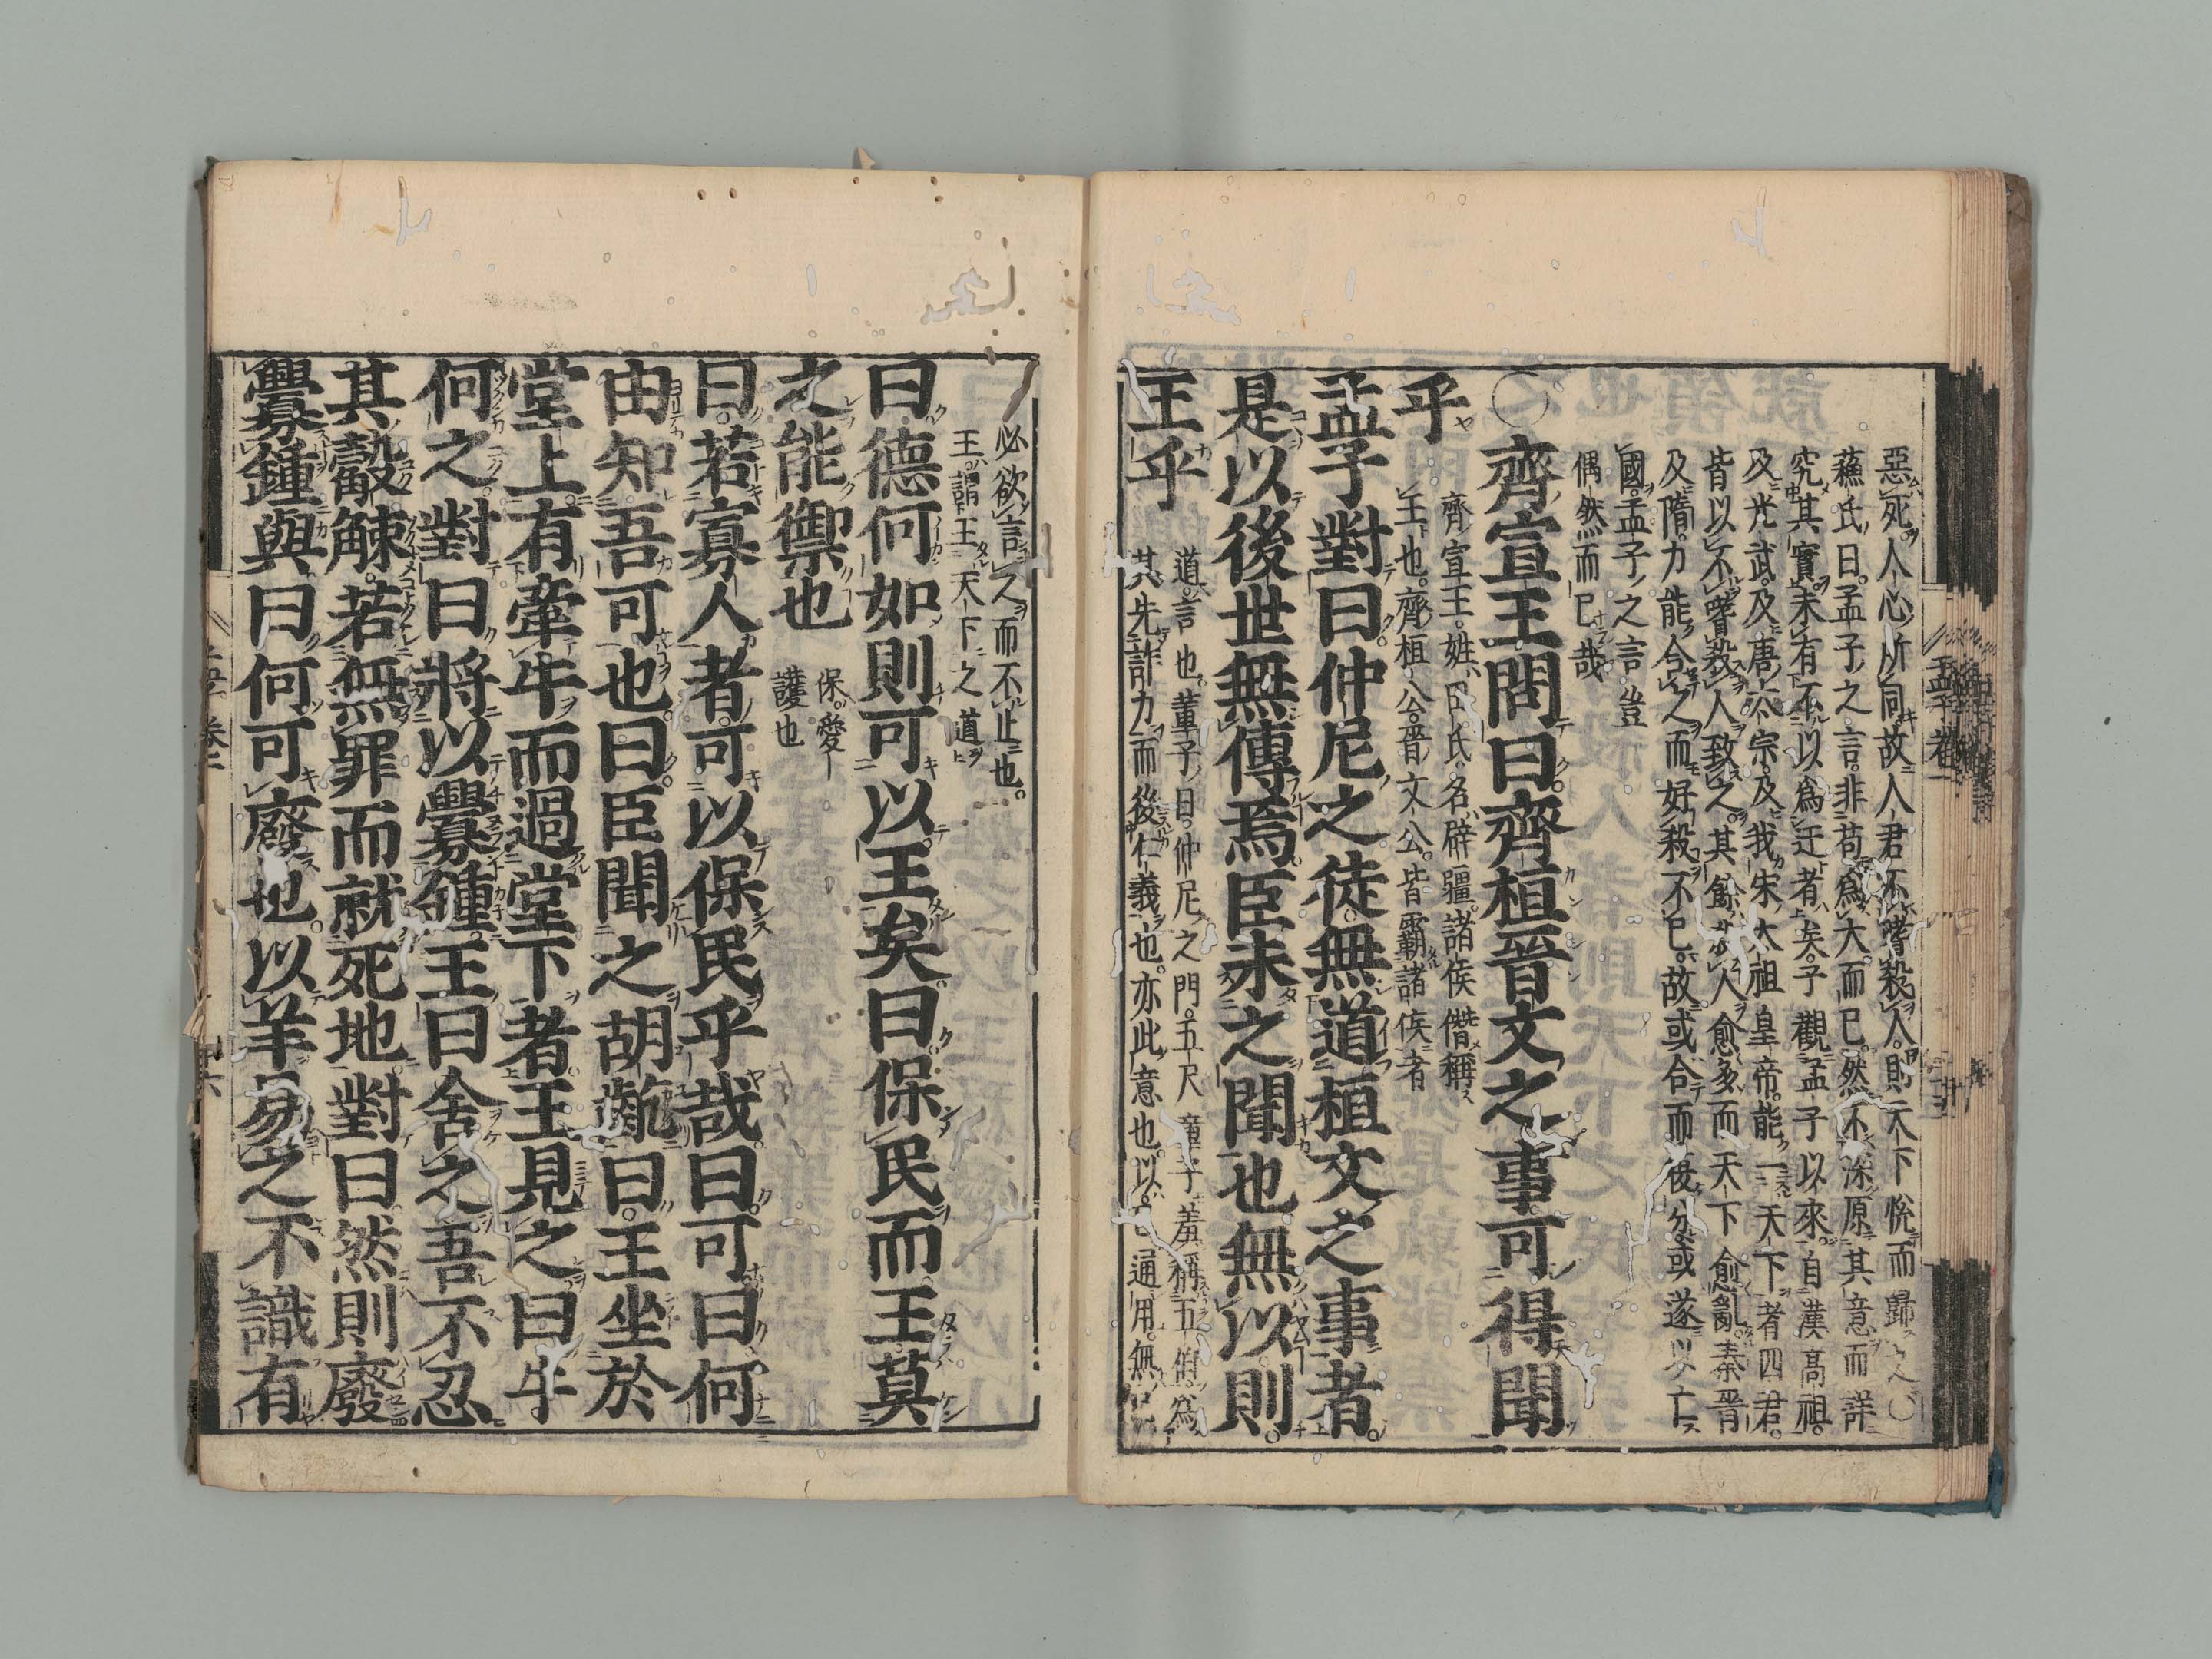 惡死。人心所同。故人君不嗜殺人。則天下悅而歸之〇
蘇氏曰。孟子之言。非苟爲大而已。然不深原其意而詳
究其實。未有不以爲迂者矣。予觀孟子以來。自漢高祖。
及光武。及唐太宗。及我宋太祖皇帝。能一天下者四君。
皆以不嗜殺人致之。其餘殺人愈多而天下愈亂。秦晉
及隋。力能合之。而好殺不已。故或合而復分。或遂以亡
國。孟子之言。豈
偶然而已哉
〇齊宣王問曰齊桓晉文之事可得聞
乎
齊宣王。姓田氏。名辟疆。諸侯僭稱
王也。齊桓公。晉文公。皆霸諸侯者
孟子對曰仲尼之徒無道桓文之事者。
是以後世無傳焉。臣未之聞也無以則。
王乎
道。言也。董子曰。仲尼之門。五尺童子羞稱五伯。爲
其先詐力而後仁義也。亦此意也。以。已通用。無已
必欲言之而不止也。
王。謂王天下之道
曰德何如則可以王矣。曰保民而王莫
之能禦也
保。愛
護也
曰。若寡人者可以保民乎哉。曰可。曰何
由知吾可也。曰臣聞之胡齕曰。王坐於
堂上有牽牛而過堂下者王見之曰牛
何之對曰將以釁鍾王曰舍之吾不忍
其觳觫。若無罪而就死地對曰然則廢
釁鍾與曰何可廢也。以羊易之不識有
孟子卷一